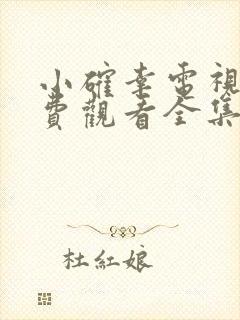 小確幸電視
費觀看全集
杜紅娘